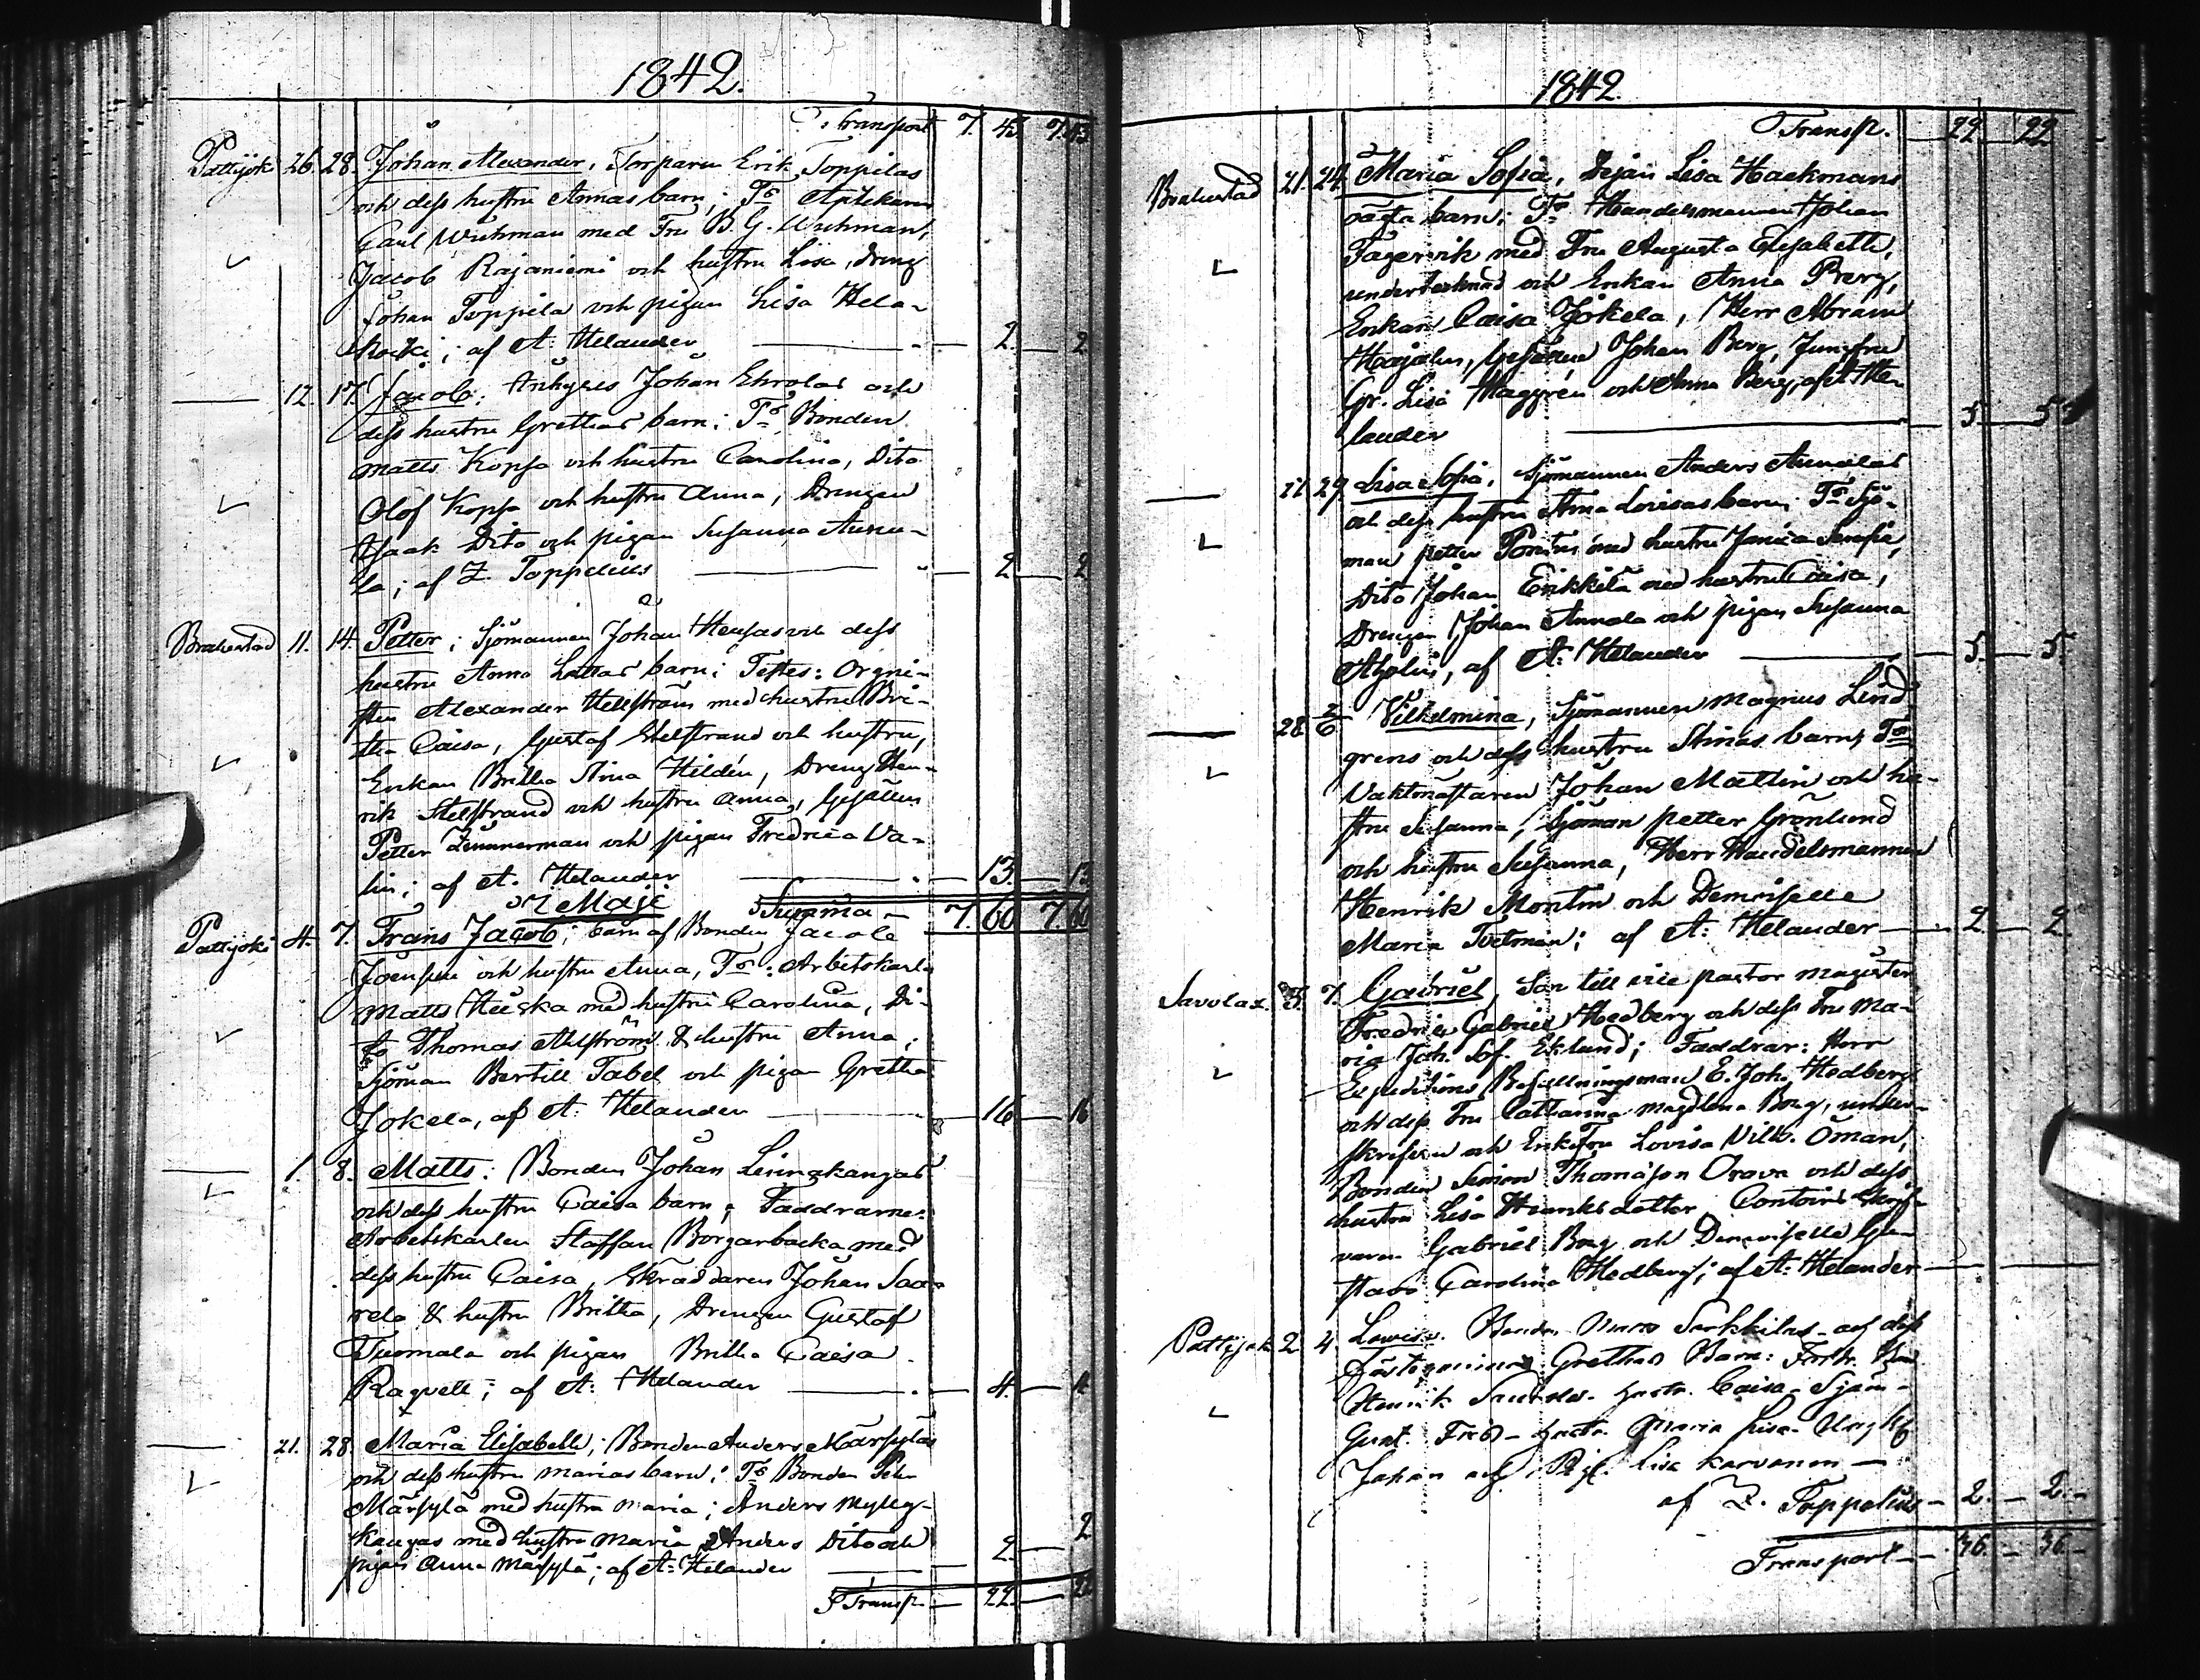 1842.
Transport 7. 43 7.43
Pattijok 26. 28. Johan Alexander, Torparen Erik Toppilas
och dess hustru Annas barn; Ts Apthekaren
Carl Wichman med Fru B. G. Wichman,
Jacob Rajaniemi och hustru Lisa, dreng
Johan Toppila och pigan Lisa Hela-
koski; af A: Helander 2. 2
12. 17. Jacob; Johan Ehrolas och
dess hustru Grethas barn; Ts Bonden
Matts Kopsa och hustru Carolina, Dito
Olof Kopsa och hustru Anna, Drengen
Isaak Dito och pigan Susanna Annu-
la; af Z. Toppelius 2 2
Brahestad 11. 14. Petter; Sjömannen Johan och dess
hustru Anna barn; Testes: Orgni-
sten Alexander Hellström med hustru Bri-
tha Caisa, Gustaf Helstrand och hustru,
Enkan Britha Stina Hildén, Dreng Hen-
rik Helstrand och hustru Anna, Gesällen
Petter Zimmerman och pigan Fredrica Va-
lin; af A. Helander 13 13
i Maji Summa 7. 60 7. 60
Pattijoki 4. 7. Frans Jacob; barn af Bonden Jacob
och hustru Anna, Ts: Arbetskarln
Matts Huska med hustru Carolina, Di-
to Thomas Ahlström & hustru Anna;
Sjöman Bertill Tabel och pigan Gretha
Jokela, af A: Helander 16 16
1. 8. Matts: Bonden Johan Leinakangas
och dess hustru Caisa barn; Faddrarne:
Arbetskarlen Staffan Borgarbacka med
dess hustru Caisa, Skräddaren Johan Saa-
rela & hustru Britha, Drengen Gustaf
Tuomala och pigan Britha Caisa
Raquell; af A: Helander 4. 4
21. 28. Maria Elisabeth; Bonden Anders Märsyläs
och dess hustru Marias barn; Ts Bonden Pehr
Märsylä med hustru Maria; Anders Mylly-
kangas med hustru Maria, Anders Dito och
pigan Anna Märsylä; af A: Helander 2. 2
Transp. 22. 22
1842.
Transp. 22 22
Brahestad 21. 24. Maria Sofia, Pejan Lisa Hackmans
oägta barn; Ts Handelsmannen Johan
Fagervik med Fru Augusta Elisabeth,
undertecknad och Enkan Anna Berg,
Enkan Caisa Jokela, Herr Abram
Gesällen Johan Berg, Jungfru
Gr. Lisa Haggrén och Anna Berg, af A: He-
lander 5 5
27. 29. Lisa Sofia, Sjömannen Anders Annalas
och dess hustru Anna Lovisas barn; Ts Sjö-
man Petter Pontus med hustru Serafia,
Dito Johan Erikkilä med hustru Caisa,
Drengen Johan Annala och pigan Susanna
Aholin, af A: Helander 5. 5.
28. 2/6 Vilhelmina, Sjömannen Magnus Lind-
grens och dess hustru Stinas barn; Ts
Vaktmästaren Johan Mattin och hu-
stru Susanna, Sjöman Petter Grönlund
och hustru Susanna, Herr Handelsmannen
Henrik Montin och Demoiselle
Maria; af A: Helander 2 2
Savolax. 5. 7. Gabriel, Son till vice pastor Magister
Fredric Gabriel Hedberg och dess Fru Ma-
ria Joh. Sof. Eklund; Faddrar: Herr
Expeditions Befallningsman E. Joh. Hedberg
och dess Fru Catharina Magdlena Borg, under-
skrifven och Enkefru Lovisa Vilh. Öman,
Bonden Simon Thomasson Orava och dess
hustru Lisa Henriksdotter, Contoirs Skrif-
varen Gabriel Borg och Demoiselle Gu-
stava Carolina Hedberg; af A: Helander
Pattijok 2 4. Lovisa. Bonden Sarkkilas och dess
Fästeqvinnas Grethas Barn:
Henrik hustr. Caisa - Sjöm-
Gust. Frid - hustr. Maria Lisa - Ungk
Johan och Pig. Lisa Karvonen
af Z. Toppelius 2. 2.
Transport 36. 36.